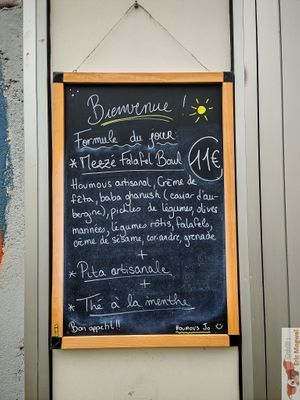 Bienvenue !
Formule du jour
* Mezzé Falafel Bowl
11€
Houmous artisanal, Crème de
fêta, baba ghanush (caviar d'au-
bergine), pickles de légumes, olives
marinées, légumes rôtis, falafels,
crème de sésame, coriandre, grenade
+
* Pita artisanale
+
* Thé à la menthe
Bon appétit !!
Houmous Jo
Eric Mogwaï